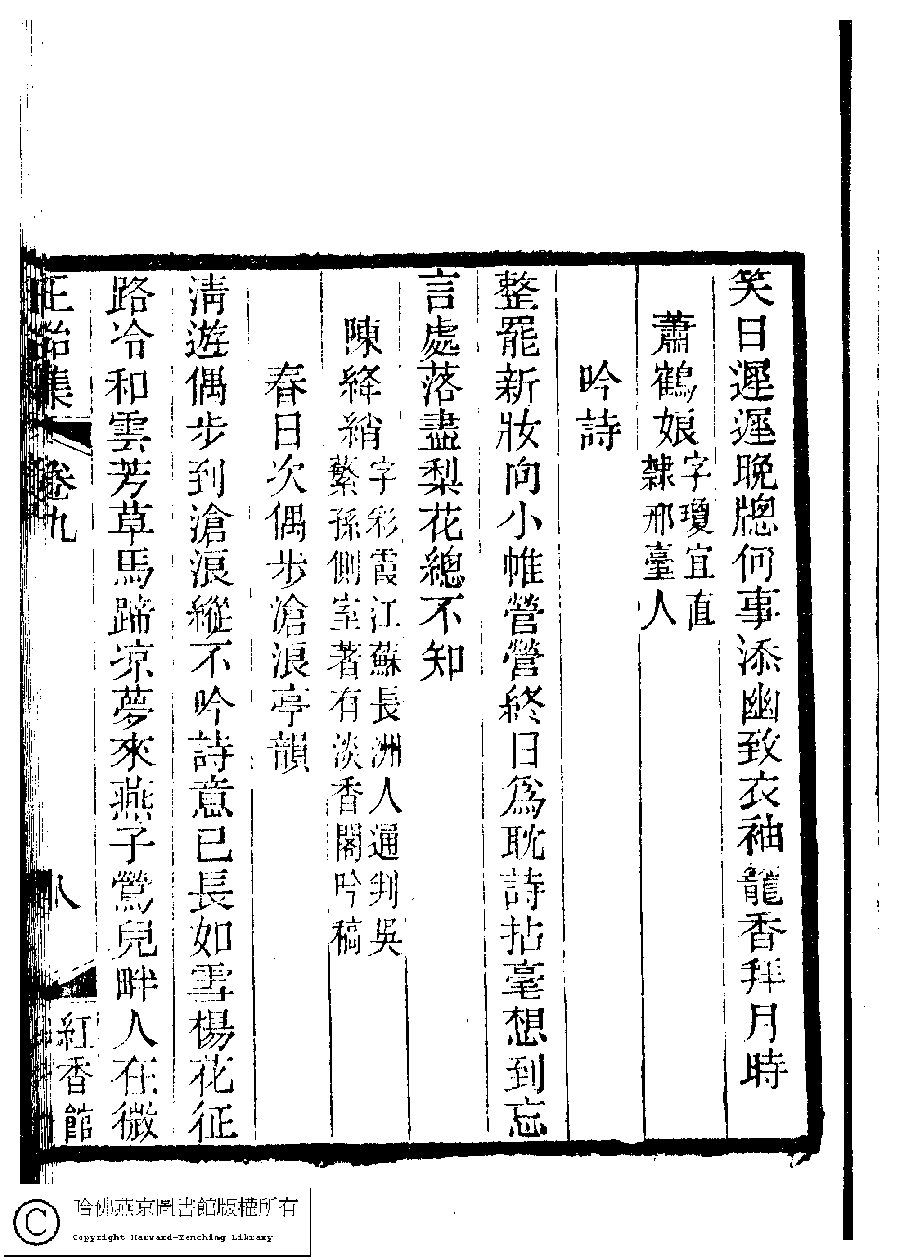 笑日遲遲晚牕何事添幽致衣袖龍香拜月時
蕭鶴娘字瓊宜直
隸邢臺人
吟詩
整罷新妝向小帷營營終日爲耽詩拈毫想到忘
言處落盡梨花總不知
陳絳綃字彩霞江蘇長洲人通判吳
繁孫側室著有淡香閣吟稿
春日次偶步滄浪亭韻
淸遊偶步到滄浪縱不吟詩意已長如雪楊花征
路冷和雲芳草馬蹄凉夢來燕子鶯兒畔人在微
正始集 卷九 八 紅香館
哈佛燕京圖書館版權所有
Copyright Harvard-Yenching Library